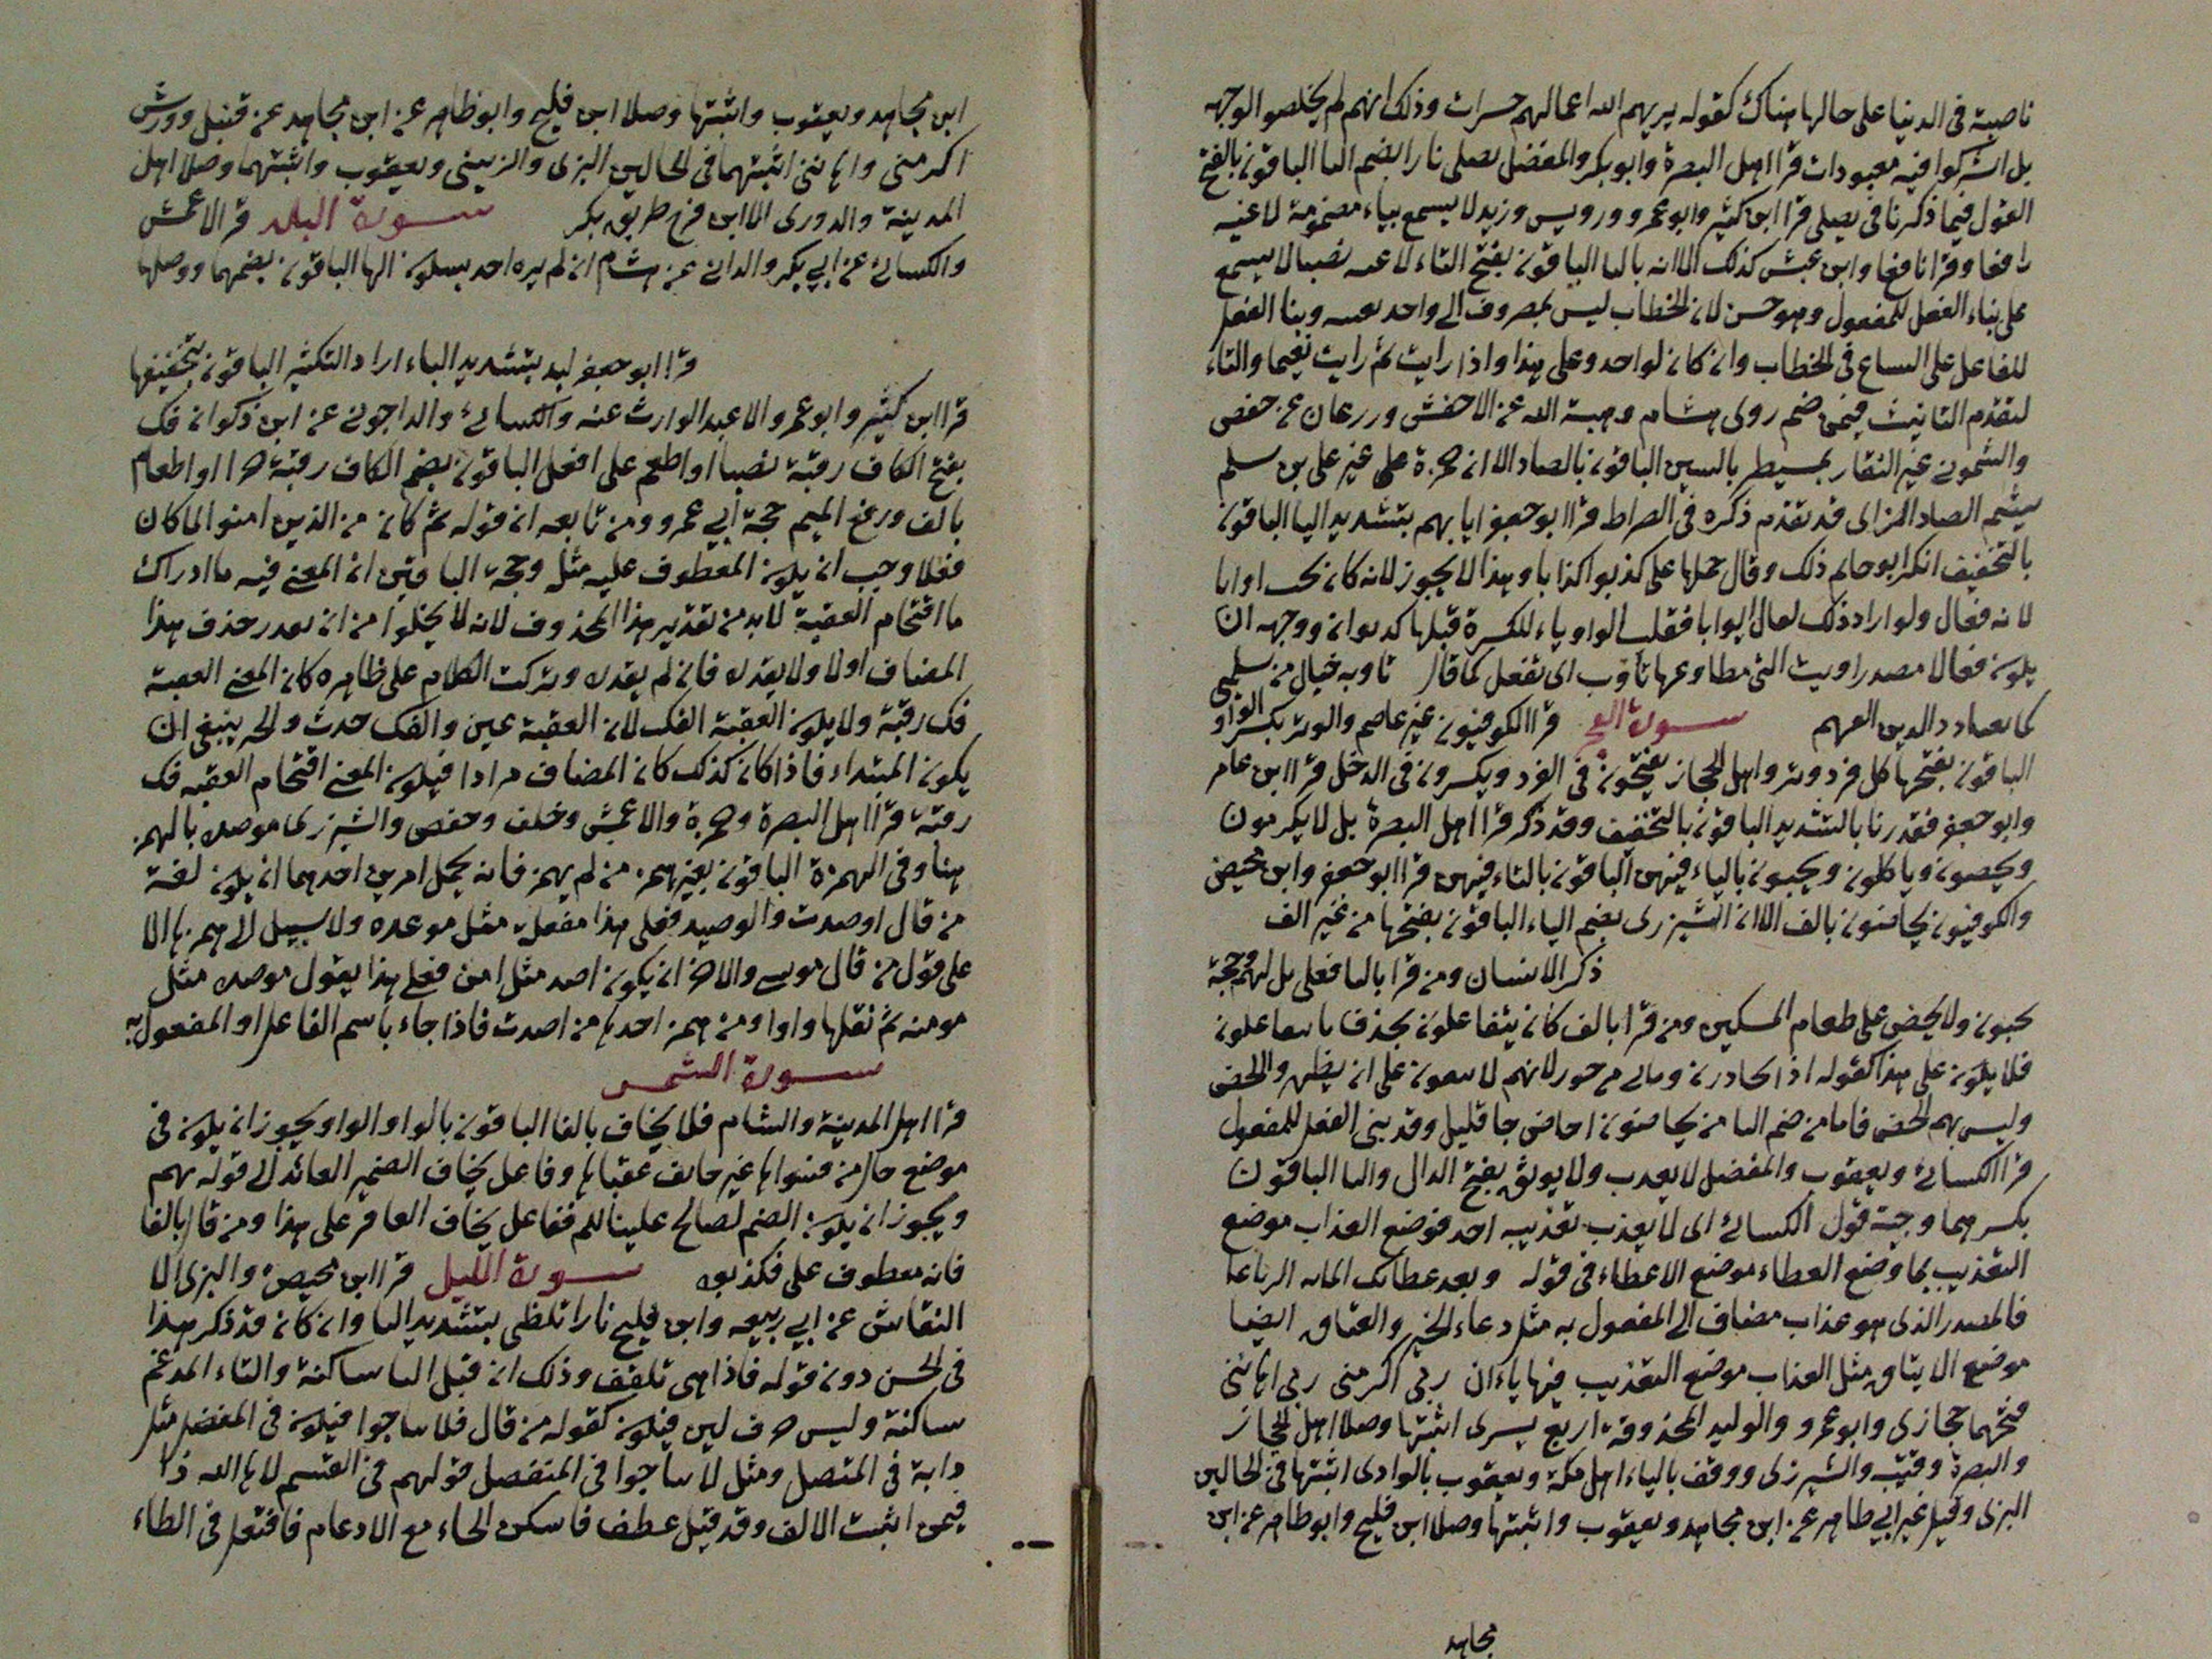 ناصبة فى الدنيا على حالها هناك كقوله يريهم الله اعمالهم حسرات وذلك انهم لم يخلصوا لوجهه
بل اشركوا فيه معبودات قرا اهل البصرة وابو بكر والمفضل يصلى نارا بضم التا الباقون بالفتح
القول فيما ذكرنا فى يصلى قرا ابن كثير وابو عمرو ورويس وزيد لا يسمع بياء مضمومة لاغية
رافعا وقرا نافع وابن كذلك الا انه بالتا الباقون بفتح التاء لاغيه نصبا لا يسمع
على بناء الفعل للمفعول وهو حسن لان الخطاب ليس بمصروف الى واحد بعينه وبنا الفعل
للفاعل على السماع فى الخطاب وان كان لواحد وعلى هذا واذا رايت ثم رايت نعيما والتاء
لتقدم التانيث فيمن ضم روى هشام وهبة الله عن الاخفش وزرعان عن حفص
والشمونى غير النقار بمسيطر بالسين الباقون بالصاد الا ان حمزة غير على بن سلم
يشم الصاد الزاى قد تقدم ذكره فى الصراط قرا ابو جعفر ايابهم بتشديد اليا الباقون
بالتخفيف انكر ابو حاتم ذلك وقال حملها على كذبوا كذابا وهذا لا يجوز لانه كان يجب اوابا
لانه فعال ولو اراد ذلك لقال ايوابا فقلب الواو ياء للكسرة قبلها كديوان ووجهه ان
يكون فعالا مصدر اويت التى مطاوعها تاوب اى تفعل كما قال تاوبه خيال من سليمى
كما يعتاد ذا الدين الغريم سورة الفجر قرا الكوفيون غير عاصم والوتر بكسر الواو
الباقون بفتحها كل فرد وتر واهل الحجاز يفتحون فى الفرد ويكسرون فى الدخل قرا ابن عامر
وابو جعفر فقدر نا بالتشديد الباقون بالتخفيف وقد ذكر قرا اهل البصرة بل لا يكرمون
ويحضون وياكلون ويحبون بالياء فيهن الباقون بالتاء فيهن قرا ابو جعفر وابن محيصن
والكوفيون تحاضون بالف الا ان الشيزرى بضم الياء الباقون بفتحها من غير الف
ذكر الانسان ومن قرا بالتا فعلى قل لهم وحجة
تحبون ولا يحض على طعام المسكين ومن قرا بالف كان يتفاعلون بحذف تا يتفاعلون
فلا يكون على هذا كقوله اذا تخازرت ومابى من خزر لانهم لا ينعون على ان يظهر والحض
وليس بهم الحض فاما من ضم التا من تحاضون احاض جا قليل وقد بنى الفعل للمفعول
قرا الكسائى ويعقوب والمفضل لا يعذب ولا يوثق بفتح الذال والثا الباقون
بكسرهما وحجة قول الكسائى اى لا يعذب تعذيبه احد فوضع العذاب موضع
التعذيب كما وضع العطاء موضع الاعطاء فى قوله وبعد عطائك المائه الرتاعا
فالمصدر الذى هو عذاب مضاف الى المفعول به مثل دعاء الخير والعتاق ايضا
موضع الايثاق مثل العذاب موضع التعذيب فيها ياءان ربى اكرمنى ربى اهاننى
فتحهما حجازى وابو عمرو والوليد المحذوفة اربع يسرى اثبتها وصلا اهل الحجاز
والبصرة وقتيبة والشيزرى ووقف بالياء اهل مكة ويعقوب بالوادى اثبتها فى الحالين
البزى وقنبل غير ابى طاهر عن ابن مجاهد ويعقوب واثبتها وصلا ابن فليح وابو طاهر عن ابن
مجاهد
ابن مجاهد ويعقوب واثبتها وصلا ابن فليح وابو طاهر عن ابن مجاهد عن قنبل وورش
اكرمنى واهاننى اثبتهما فى الحالين البزى والزينبى ويعقوب واثبتهما وصلا اهل
المدينة والدورى الا ابن فرح طريق بكر سورة البلد قرا الاعمش
والكسائى عن ابى بكر والدانى عن هشام ان لم يره احد بسكون الها الباقون بضمها ووصلها
قرا ابو جعفر لبدا بتشديد الباء اراد التكثير الباقون بتخفيفها
قرا ابن كثير وابو عمرو الا عبد الوارث عنه والكسائى والداجونى عن ابن ذكوان فك
بفتح الكاف رقبة نصبا او اطعم على افعل الباقون بضم الكاف رقبة جرا او اطعام
بالف ورفع الميم حجة ابى عمرو ومن تابعه ان قوله ثم كان من الذين امنوا لما كان
فعلا وجب ان يكون المعطوف عليه مثله وحجة الباقين ان المعنى فيه ما ادراك
ما اقتحام العقبة لابد من تقدير هذا المحذوف لانه لا يخلوا من ان يقدر حذف هذا
المضاف اولا ولا يقدره فان لم يقدره وتركت الكلام على ظاهره كان المعنى العقبة
فك رقبة ولا يكون العقبة الفك لان العقبة عين والفك حدث والخبر ينبغى ان
يكون المبتداء فاذا كان كذلك كان المضاف مرادا فيكون المعنى اقتحام العقبه فك
رقبة قرا اهل البصرة وحمزة والاعمش وخلف وحفص والشيزرى موصده بالهمز
هنا وفى الهمزة الباقون بغير همز من لم يهمز فانه يحمل امرين احدهما ان يكون لغة
من قال اوصدت والوصيد فعلى هذا مفعلة مثل موعده ولا سبيل الى همزها الا
على قول من قال موسى والاخر ان يكون اصد مثل امن فعلى هذا يقول موصده مثل
مومنه ثم نقلها واوا ومن همز اخذها من اصدت فاذا جاء باسم الفاعل او المفعول به
سورة الشمس
قرا اهل المدينة والشام فلا يخاف بالفا الباقون بالواو الواو يجوز ان يكون فى
موضع حال من فسواها غير خائف عقباها وفاعل يخاف الضمير العائد الى قوله ربهم
ويجوز ان يكون الضم لصالح عليه السلم ففاعل يخاف العاقر على هذا ومن قال بالفا
فانه معطوف على فكذبوه سورة الليل قرا ابن محيصن والبزى الا
النقاش عن ابى ربيعه وابن فليح نارا تلظى بتشديد التا وان كان قد ذكر هذا
فى الحسن دون قوله فاذا هى تلقف وذلك ان قبل التا ساكنة والتاء المدغم
ساكنة وليس حرف لين فيكون كقوله من قال فلا تناجوا فيكون فى المنفصل مثل
دابة فى المتصل ومثل لا تناجوا فى المنفصل قولهم فى القسم لاها الله ذا
فيمن اثبت الالف وقد قيل عطف فاسكن الحاء مع الادغام فافتعل فى الطاء